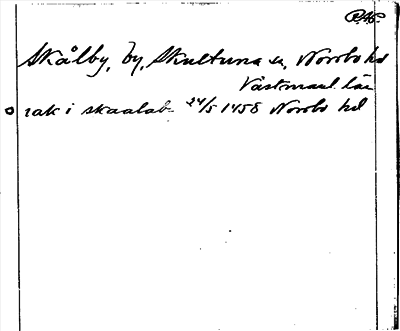 Skålby, by, Skultuna sn, Norrbo hd
Västmanl. län
o rak i skaalab 24/5 1458 Norrbo hd